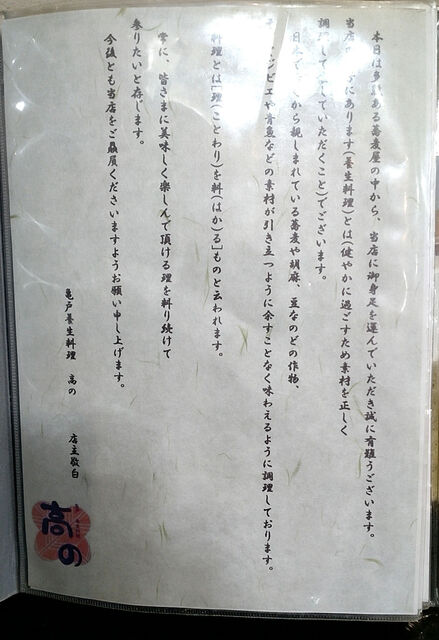 本日は多数ある蕎麦屋の中から、当店に御身足を運んでいただき誠に有難うございます。
当店の にあります(養生料理)とは(健やかに過ごすため素材を正しく
調理して していただくこと)でございます。
日本で から親しまれている蕎麦や胡麻、豆なのどの作物、
ジビエや青魚などの素材が引き立つように余すことなく味わえるように調理しております。
料理とは[理(ことわり)を料(はか)る]ものと云われます。
常に、皆さまに美味しく楽しんで頂ける理を料り続けて
参りたいと存じます。
今後とも当店をご贔屓くださいますようお願い申し上げます。
亀戸養生料理 高の 店主敬白
高の